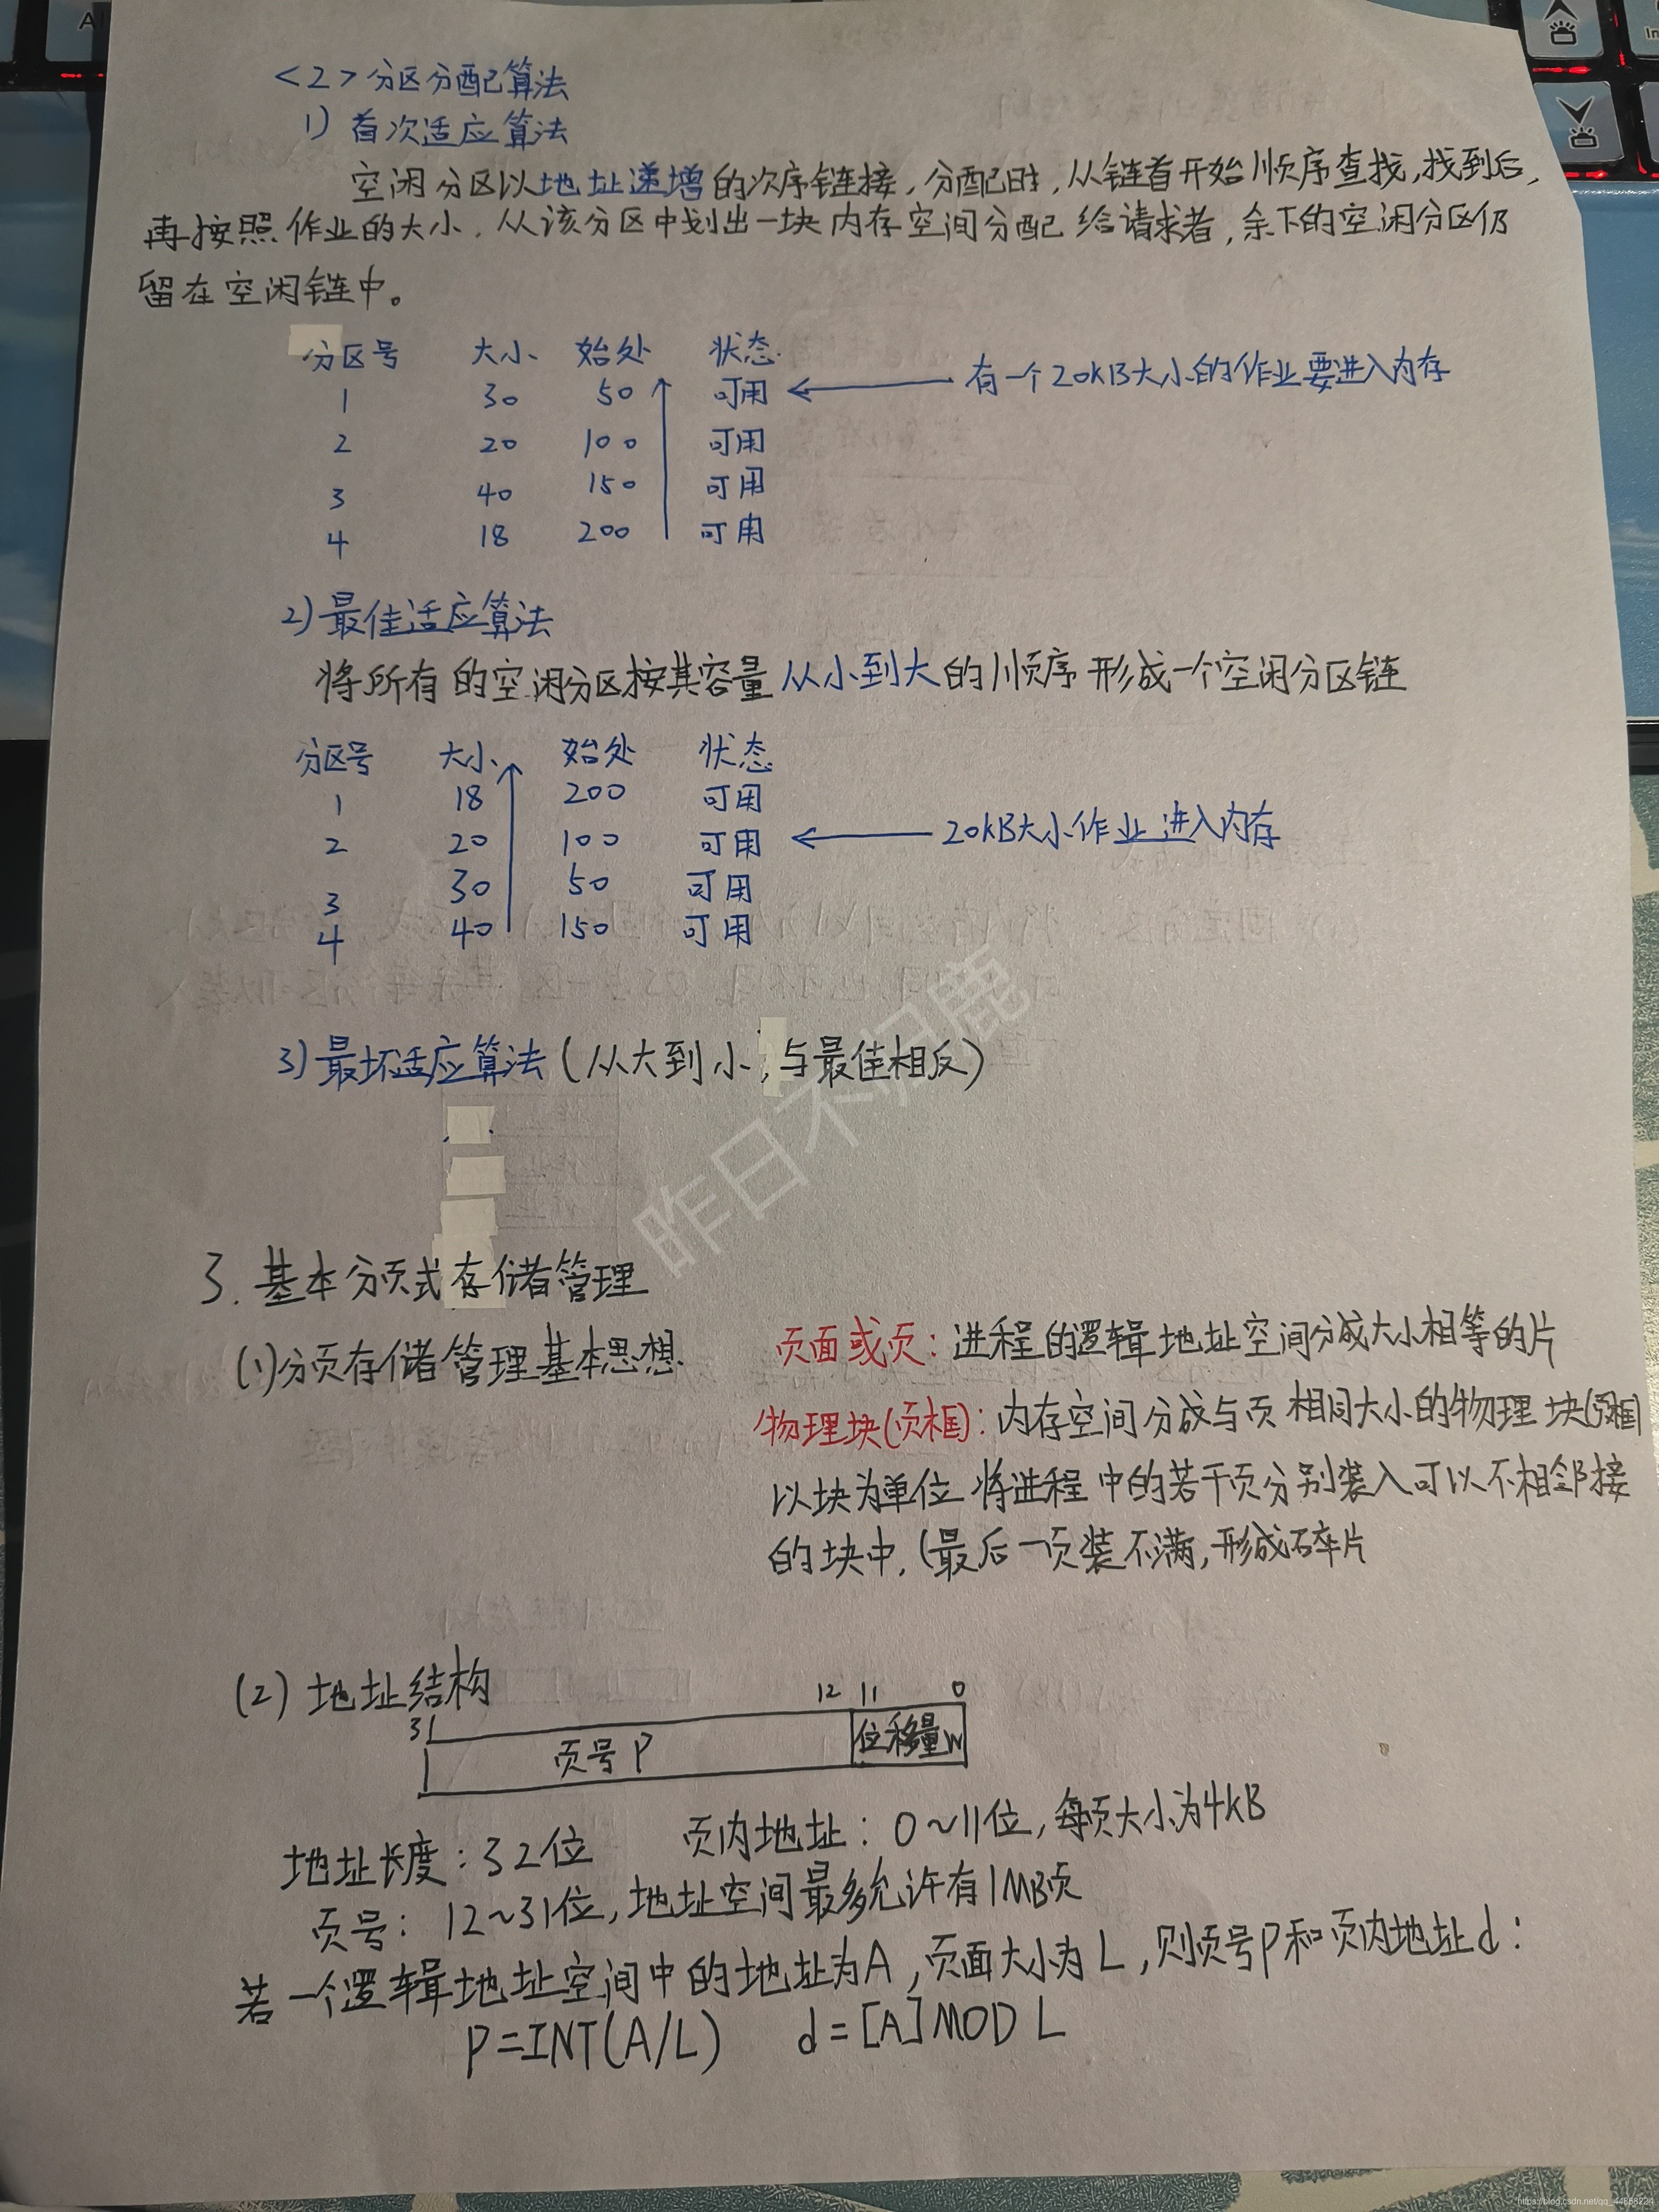 <2>分区分配算法
1) 首次适应算法
空闲分区以地址递增的次序链接，分配时，从链首开始顺序查找，找到后，
再按照作业的大小，从该分区中划出一块内存空间分配给请求者，余下的空闲分区仍
留在空闲链中。
分区号 大小 始处 状态
1 30 50 可用 有一个20KB大小的作业要进入内存
2 20 100 可用
3 40 150 可用
4 18 200 可用
2)最佳适应算法
将所有的空闲分区按其容量从小到大的顺序形成一个空闲分区链
分区号 大小 始处 状态
1 18 200 可用
2 20 100 可用 20KB大小作业进入内存
3 30 50 可用
4 40 150 可用
3)最坏适应算法(从大到小,与最佳相反)
昨日不归鹿
3.基本分页式存储管理
(1)分页存储管理基本思想.
页面或页：进程的逻辑地址空间分成大小相等的片
物理块(页框)：内存空间分成与页相同大小的物理块(页框)
以块为单位将进程中的若干页分别装入可以不相邻接
的块中,(最后一页装不满,形成碎片
(2) 地址结构
31 12 11 0
页号P 位移量W
地址长度：32位 页内地址：0~11位,每页大小为4KB
页号：12~31位,地址空间最多允许有1MB页
若一个逻辑地址空间中的地址为A,页面大小为L,则页号P和页内地址d：
P=INT(A/L) d=[A]MOD L